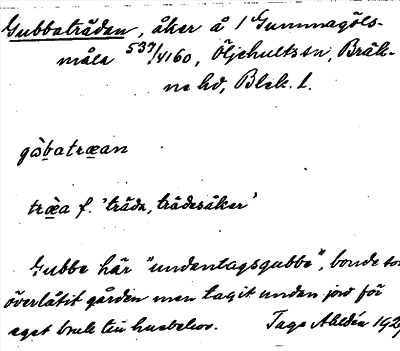 Gubbaträdan, åker å 1 Gummagöls-
måla 537/4160, Öljehults sn, Bräk-
ne hd, Blek. l.
gòbatræan
træ̀a f. 'träda, trädesåker'
Gubbe här "undantagsgubbe", bonde som
överlåtit gården men tagit undan jord för
eget bruk till husbehov. Tage Ahldén